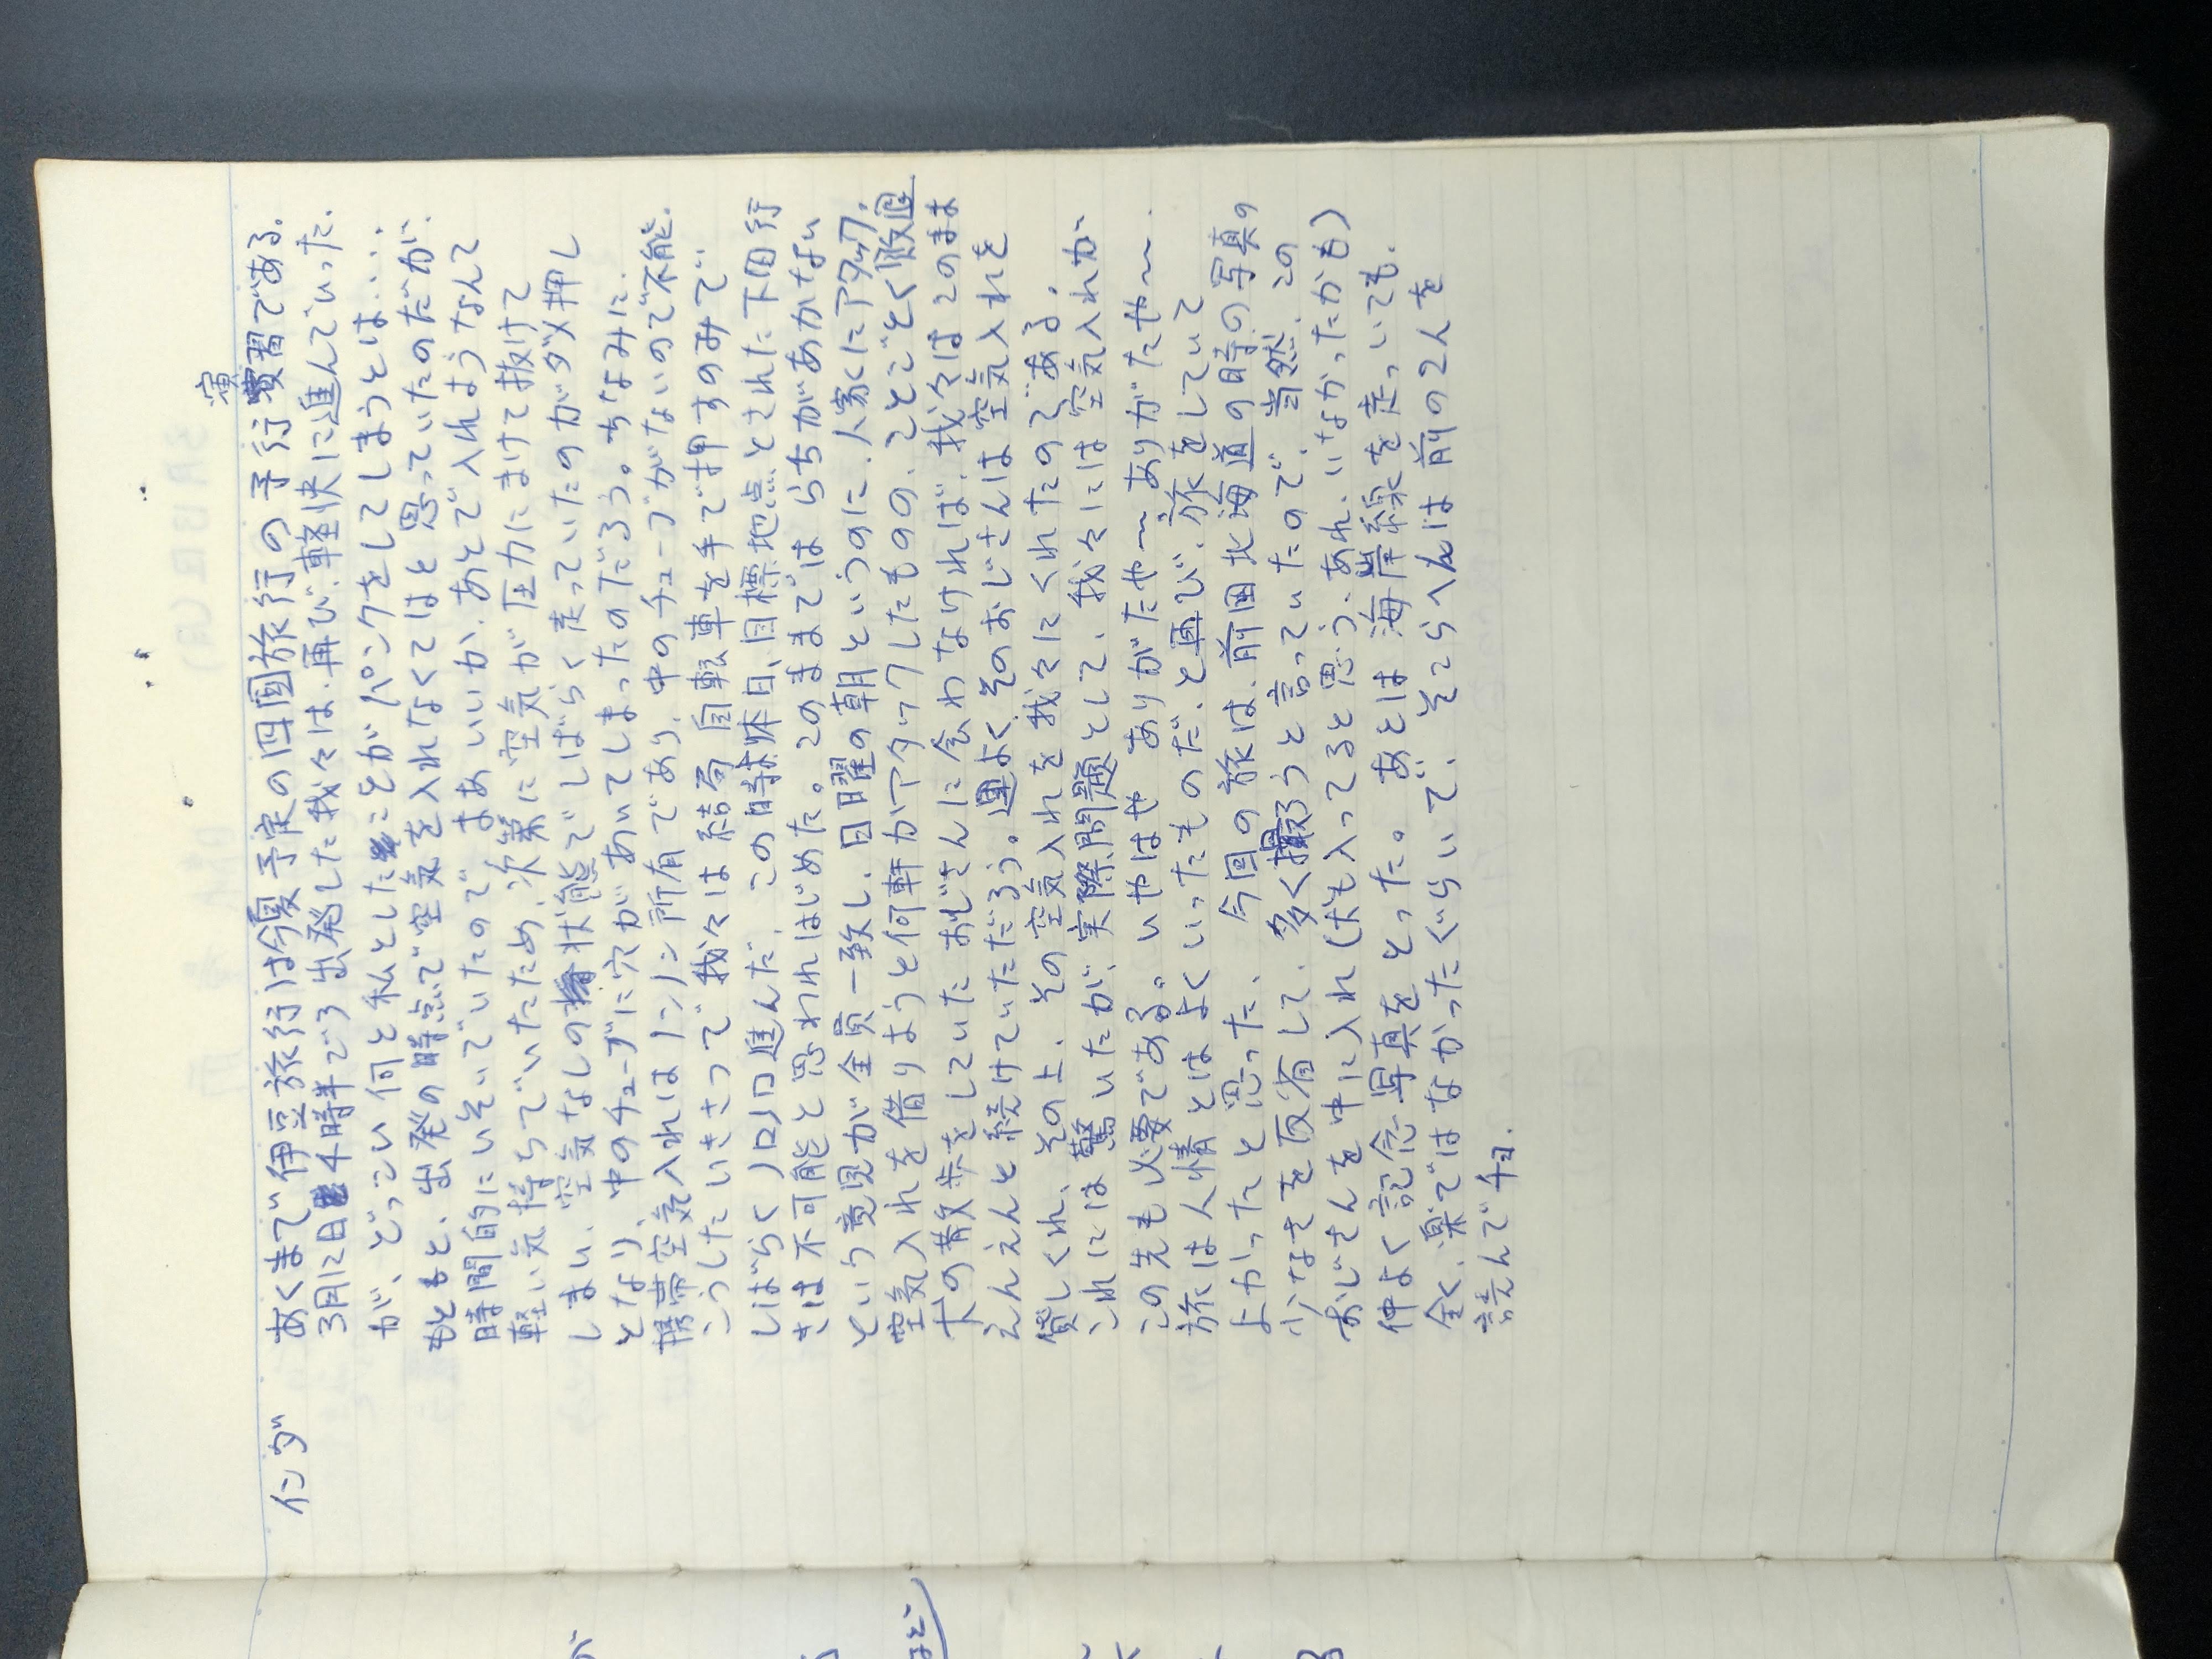 インダ
あくまで伊豆旅行は今夏予定の四国旅行の予行演習である。
3月12日4時半ごろ出発した我々は、再び、軽快に進んでいった。
が、どっこい何と私としたことがパンクをしてしまうとは...
もともと、出発の時点で空気を入れなくてはと思っていたのだが、
時間的にいそいでいたので、まあいいか、あとで入れようなんて
軽い気持ちでいたため、次第に空気が圧力にまけて抜けて
しまい、空気なしの状態でしばらく走っていたのがダメ押し
となり、中のチューブに穴があいてしまったのだろう。ちなみに、
携帯空気入れはノンノン所有であり、中のチューブがないので不能。
こうしたいきさつで我々は結局自転車を手で押すのみで、
しばらくノロノロ進んだ。この時点休日、目標地点とされた下田行
きは不可能と思われはじめた。このままではらちがあかない
という意見が全員一致し、日曜の朝というのに、人家くにアタック。
空気入れを借りようと何軒かアタックしたものの、ことごとく敗退
犬の散歩をしていたおじさんに会わなければ、我々はこのまま
えんえんと続けていただろう。運よくそのおじさんは空気入れを
貸しくれ、その上、その空気入れを我々にくれたのである。
これには驚いたが、実際問題として、我々には空気入れが
この先も必要である。いやはや ありがたや〜 ありがたや〜.
旅は人情とはよくいったものだ、と再び、旅をしていて
よかったと思った、今回の旅は、前回北海道の時の写真の
少なさを反省して、多く撮ろうと言っていたので、当然、この
おじさんを中に入れ(犬も入ってると思う、あれ、いなかったかも)
仲よく記念写真をとった。あとは海岸線を走っていても、
全く、楽ではなかったぐらいで、そこらへんは前の2人を
読んでチョ.
が